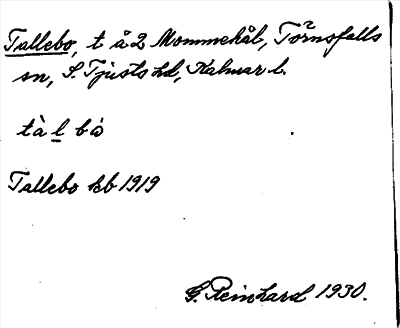 Tallebo, t å 2 Mommehål, Törnsfalls
sn, S. Tjusts hd, Kalmar l.
tàlbò
Tallebo kb 1919
G. Reinhard 1930.